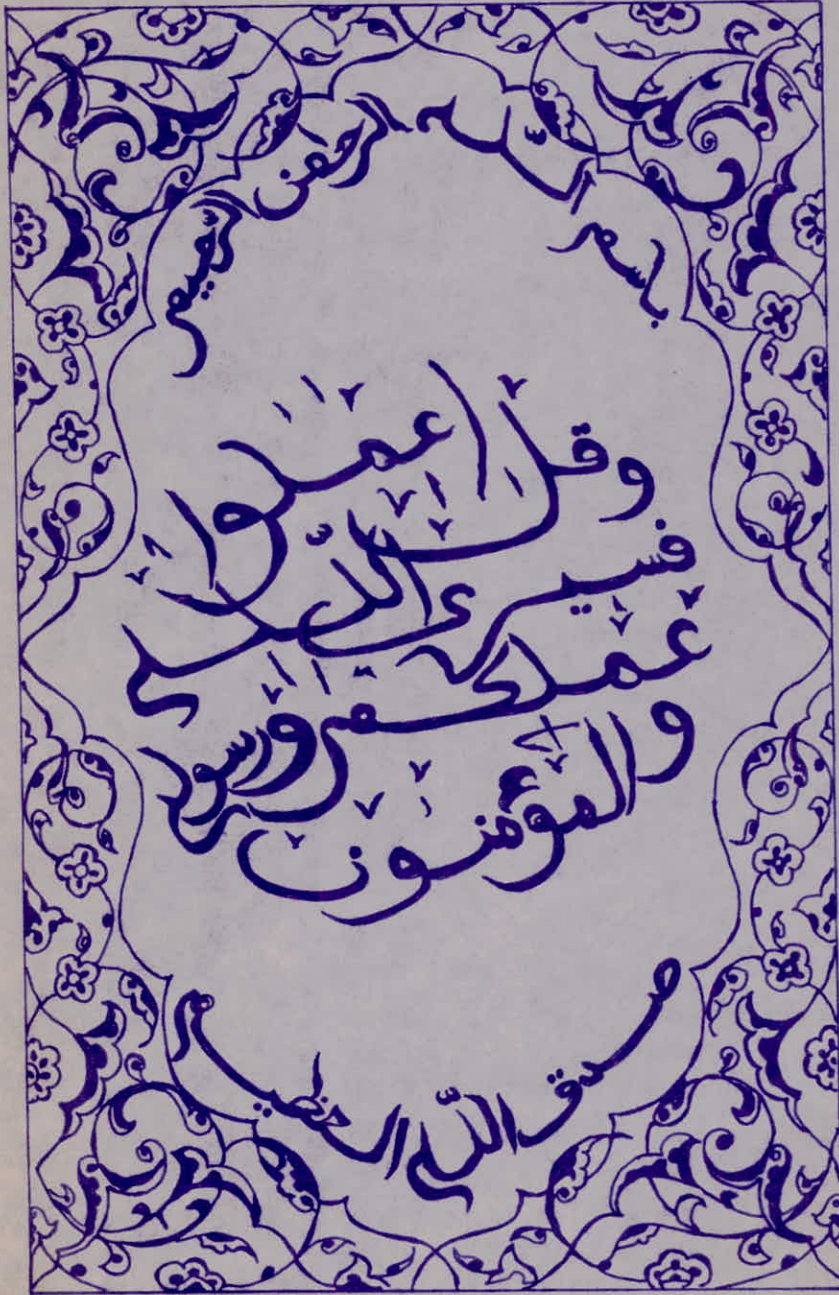 باسم الله الرحمن الرحيم
وقل اعملوا
فسيرى الله
عملكم ورسوله
والمؤمنون
صدق الله العظيم